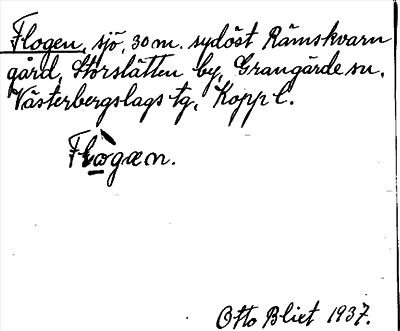 Flogen, sjö, 30 m. sydöst Rämskvarn
gård, Storslätten by, Grangärde sn,
Västerbergslags tg, Kopp l.
Flògæn.
Otto Blixt 1937.